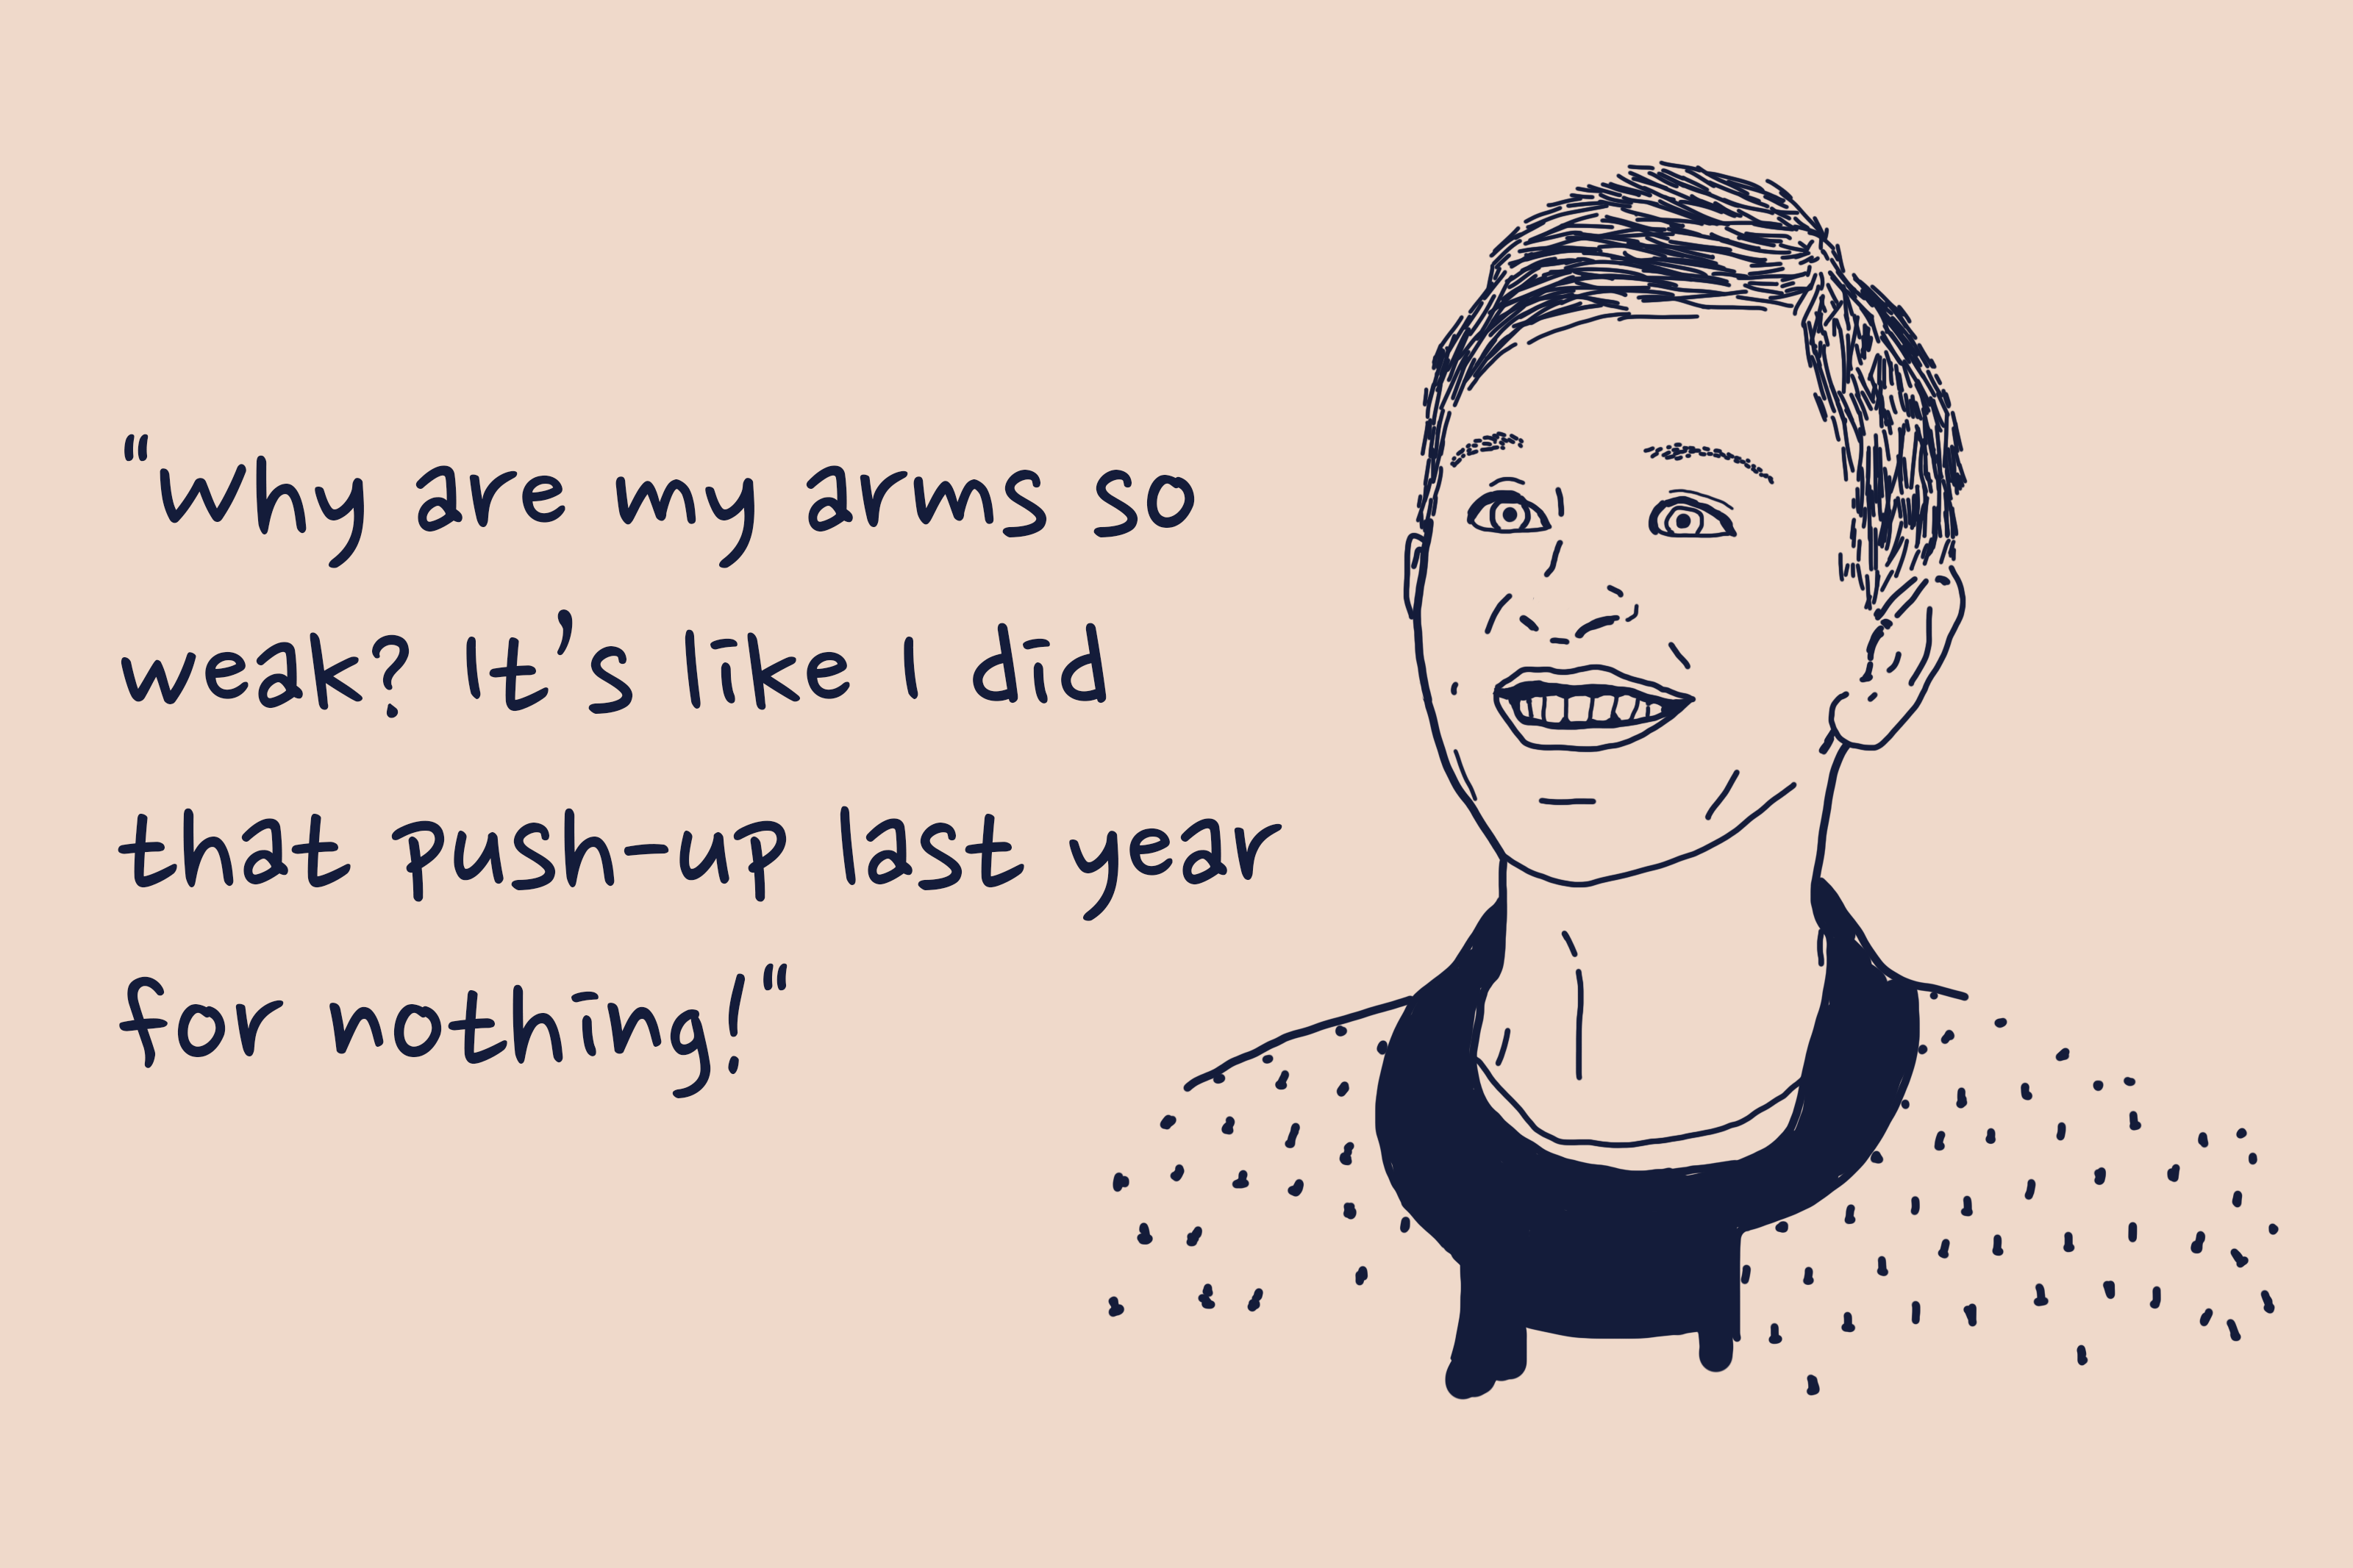 “Why are my arms so
weak? It’s like I did
that push-up last year
for nothing!“